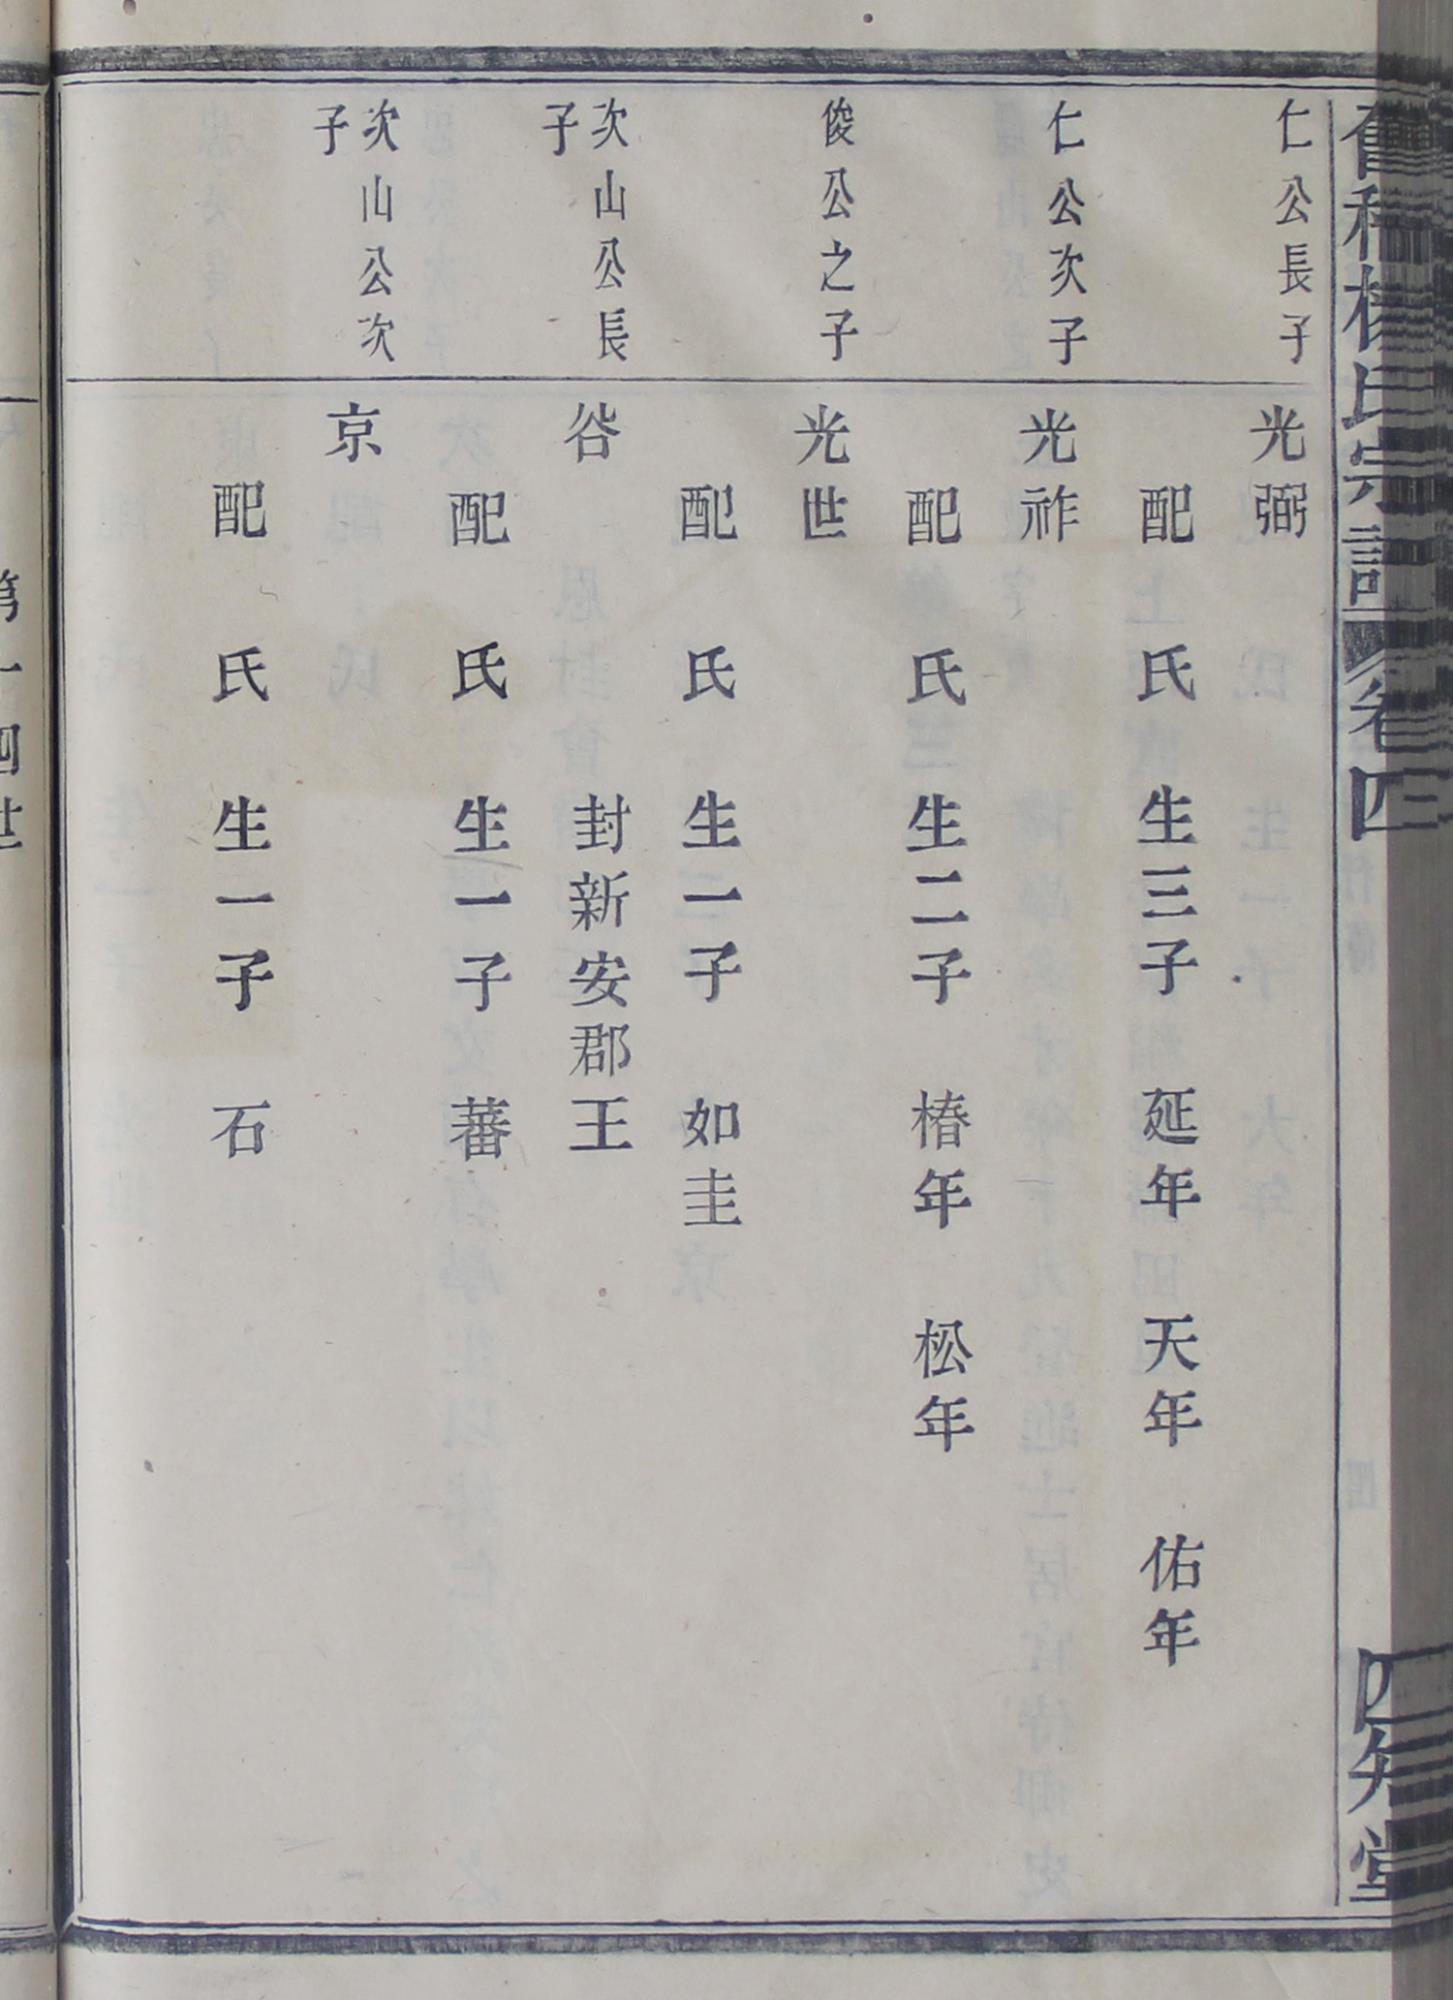 仁公長子
光弼
配　氏　生三子　延年　天年　佑年
仁公次子
光祚
配　氏　生二子　椿年　松年
俊公之子
光世
配　氏　生一子　如圭
次山公長
子
谷　封新安郡王
配　氏　生一子　蕃
次山公次
子
京
配　氏　生一子　石
氏宗譜　卷四　四知堂
第十四世